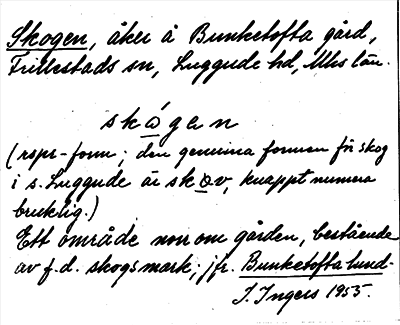 Skogen, åker å Bunketofta gård,
Frillestads sn, Luggude hd, Mhs län.
skɷ́gen
(rspr-form; den genuina formen för skog
i s. Luggude är skɷv, knappt numera
bruklig.)
Ett område norr om gården, bestående
av f.d. skogsmark; jfr. Bunketofta lund.
I. Ingers 1955.